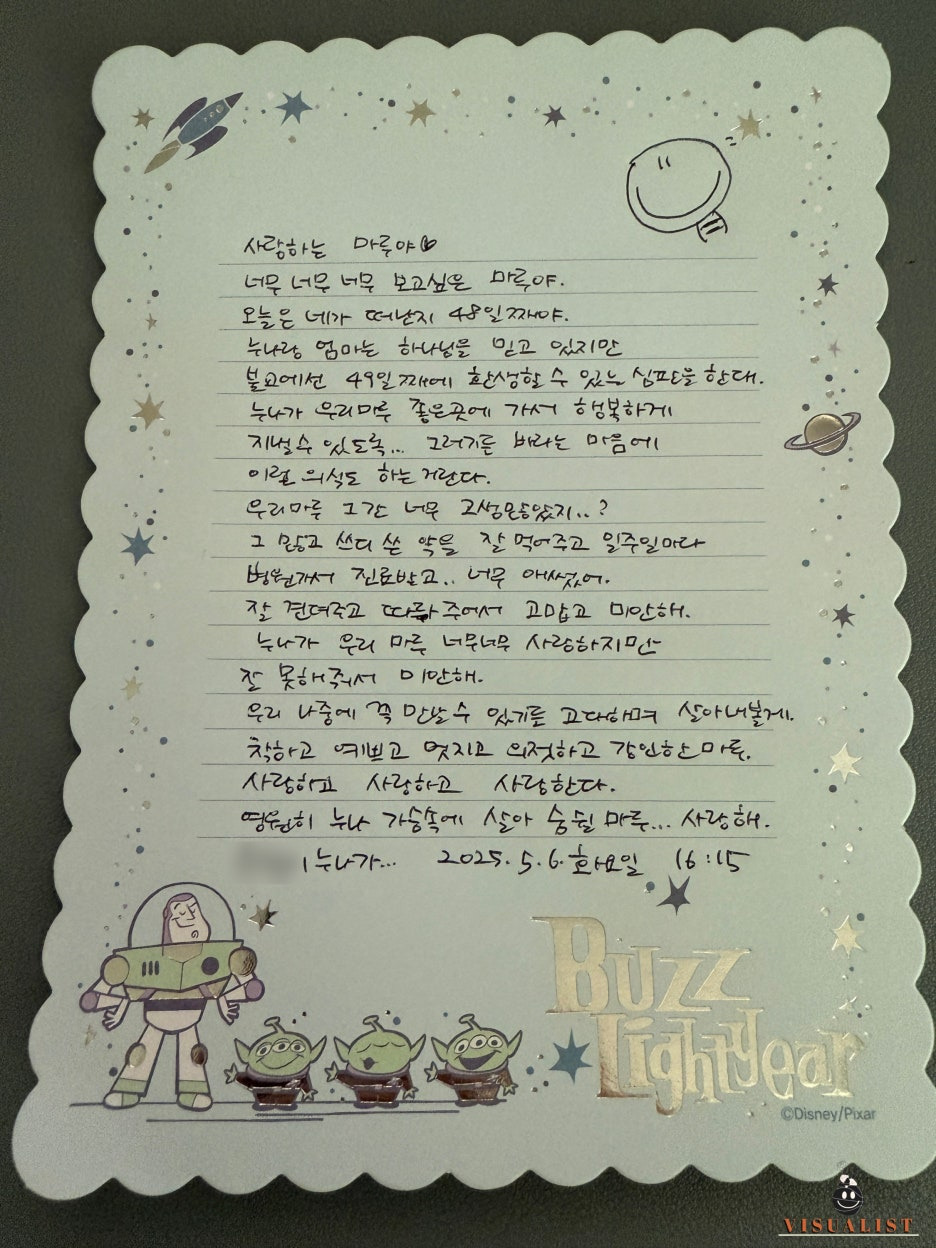 사랑하는 마루야
너무 너무 너무 보고싶은 마루야.
오늘은 네가 떠난지 48일째야.
누나랑 엄마는 하나님을 믿고 있지만
불교에선 49일째에 환생할 수 있는 심판을 한대.
누나가 우리마루 좋은곳에 가서 행복하게
지낼수 있도록... 그러기를 바라는 마음에
이런 의식도 하는거란다.
우리마루 그간 너무 고생많았지..?
그 많고 쓰디 쓴 약을 잘 먹어주고 일주일마다
병원가서 진료받고.. 너무 애썼어.
잘 견뎌주고 따라주어서 고맙고 미안해.
누나가 우리 마루 너무너무 사랑하지만
잘 못해줘서 미안해.
우리 나중에 꼭 만날수 있기를 고대하며 살아내볼게.
착하고 예쁘고 멋지고 의젓하고 강인한 마루.
사랑하고 사랑하고 사랑한다.
영원히 누나 가슴속에 살아 숨쉴 마루... 사랑해.
누나가... 2025.5.6.화요일 16:15
BUZZ
Lightyear
©Disney/Pixar
VISUALIST